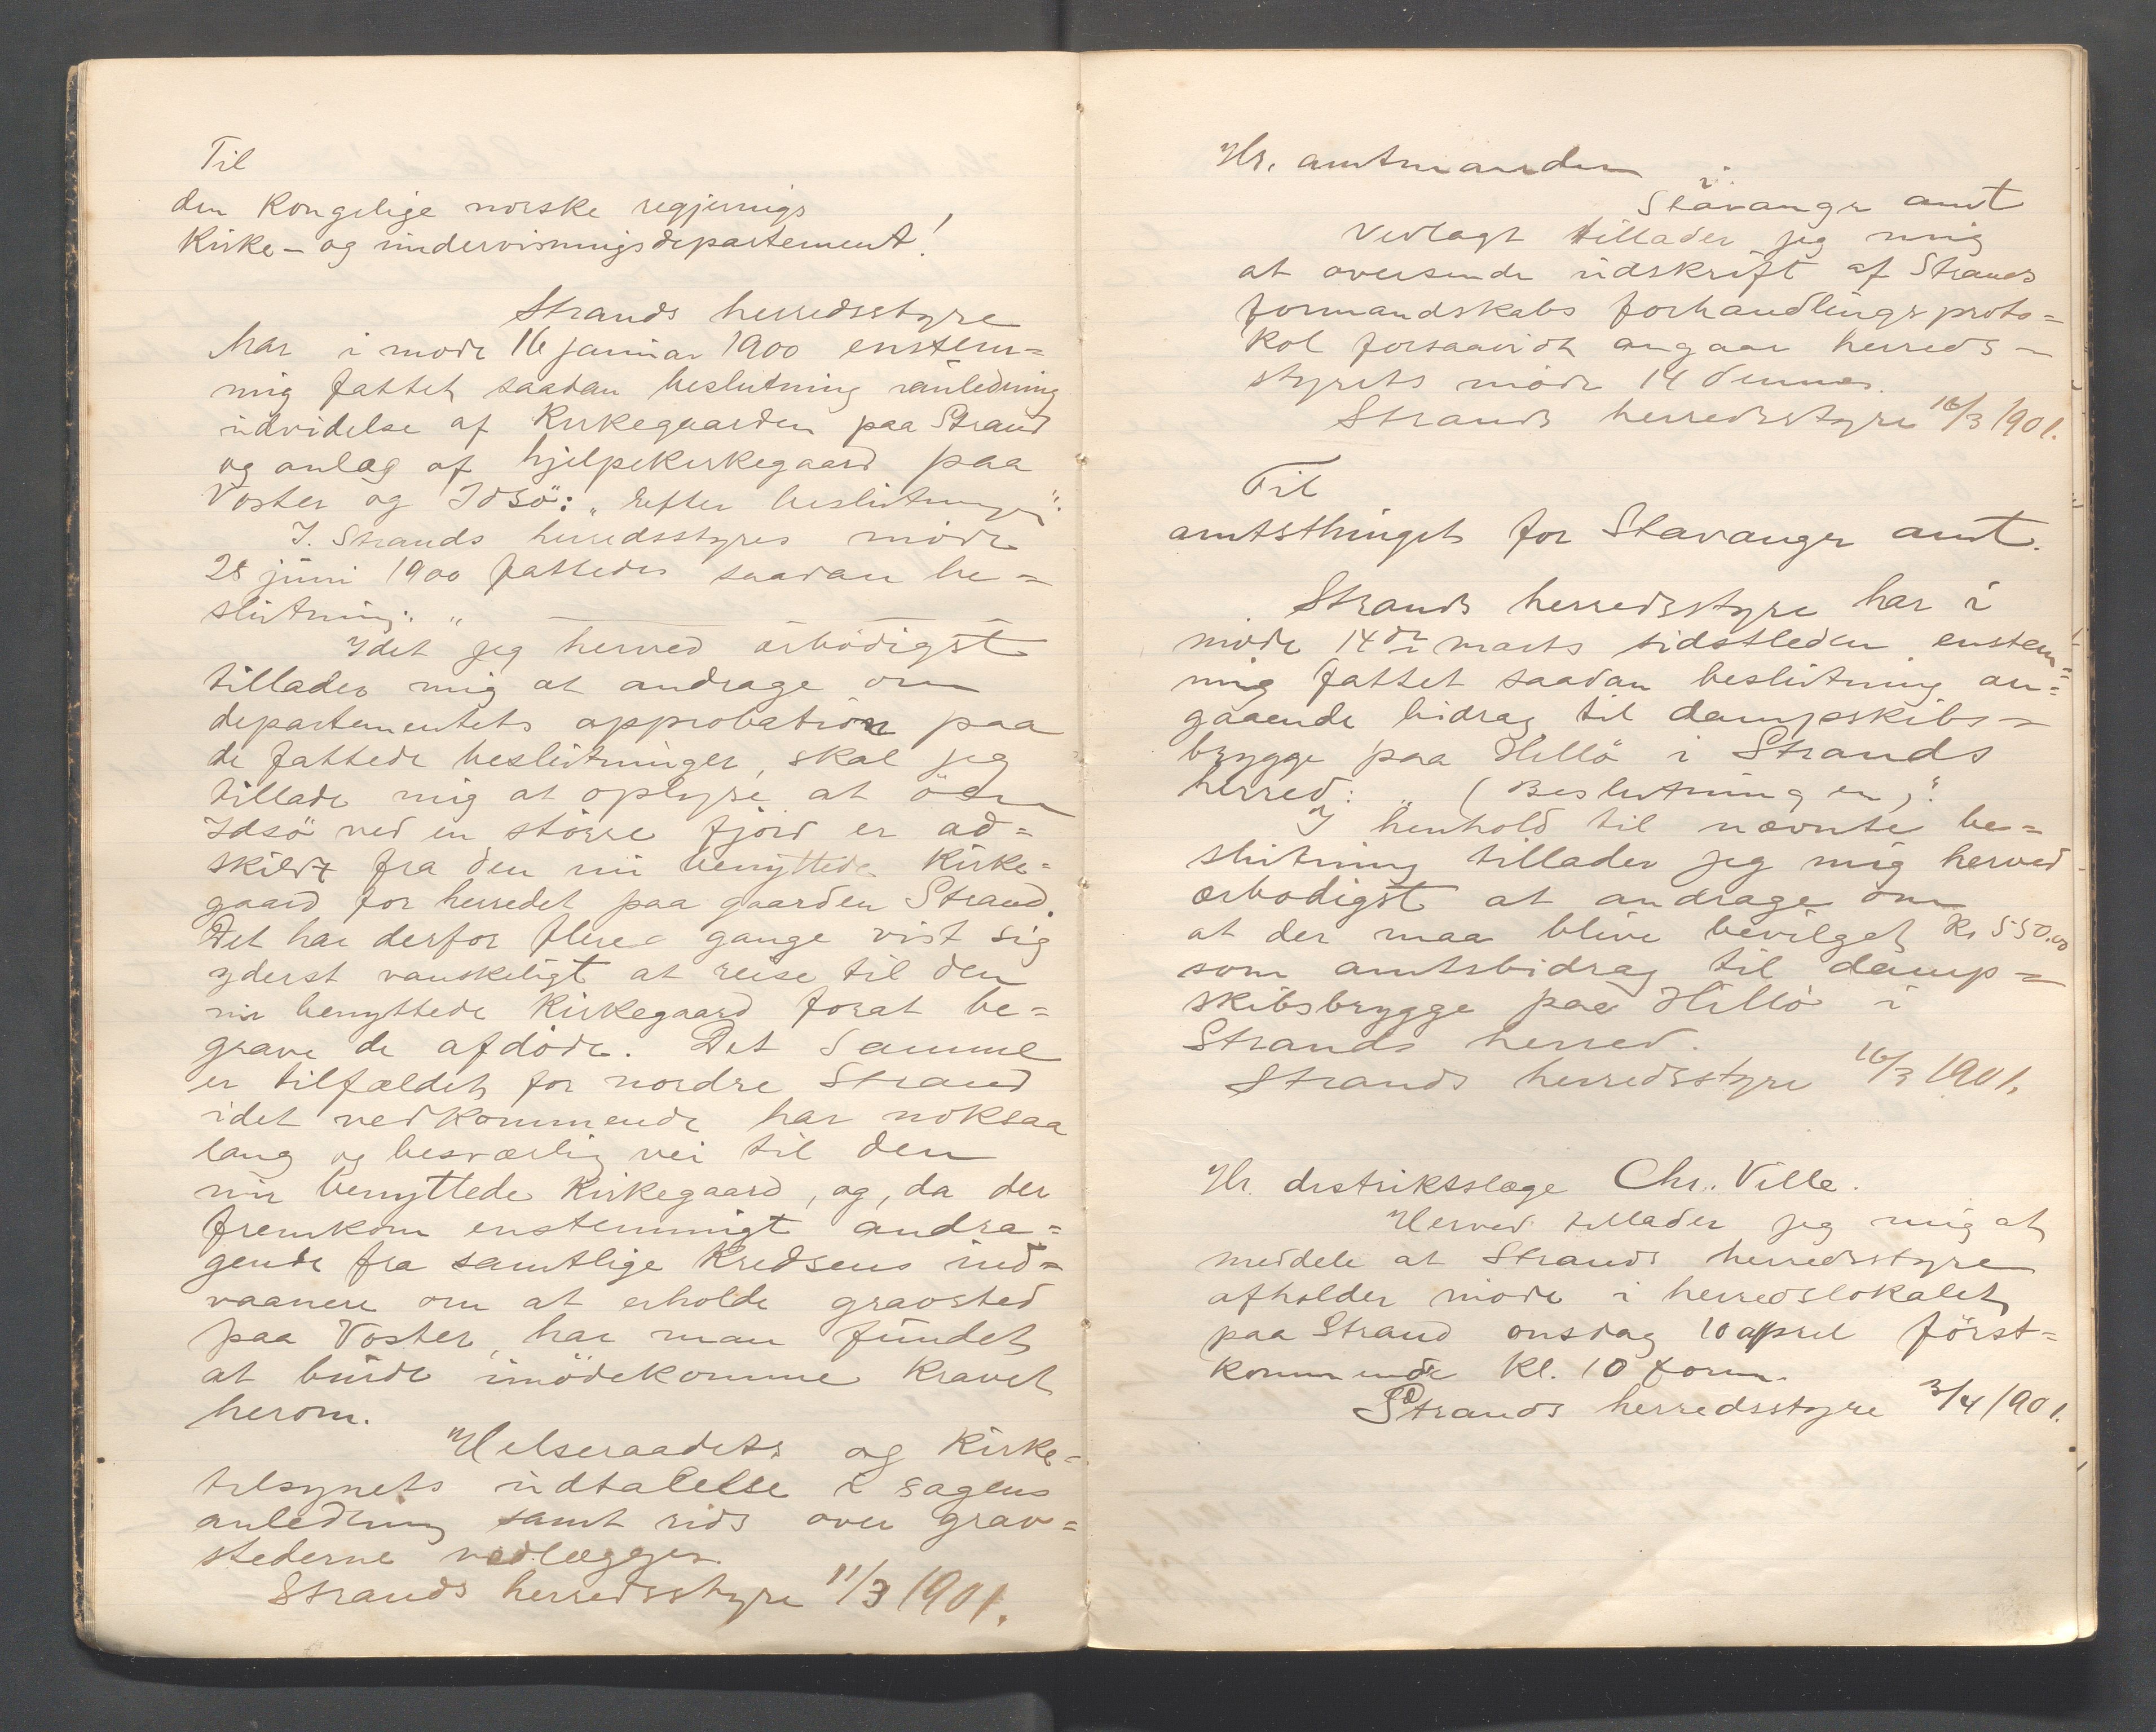 Til
den kongelige norske regjerings
Kirke- og undervisningsdepartement!
Strands herredsstyre
har i møde 16 januar 1900 enstem=
mig fattet saadan beslutning i anledning
udvidelse af Kirkegaarden paa Strand
og anlæg af hjelpekirkegaard paa
Voster og Idsö: "Efter beslutningen".
I. Strands herredsstyres møde
28 juni 1900 fattedes saadan be=
slutning: "
Idet jeg herved ærbødigst
tillader mig at andrage om
departementets approbation paa
de fattede beslutninger, skal jeg
tillade mig at oplyse at öen
Idsö ved en större fjord er ad=
skildt fra den nu benyttede Kirke=
gaard for herredet paa gaarden Strand.
Det har derfor flere gange vist sig
yderst vanskeligt at reise til den
nu benyttede Kirkegaard forat be=
grave de afdöde. Det samme
er tilfældet for nordre Strand
idet vedkommende har noksaa
lang og besværlig vei til den
nu benyttede Kirkegaard, og, da der
fremkom enstemmigt andra=
gende fra samtlige Kredsens ind=
vaanere om at erholde gravsted
paa Voster, har man fundet
at burde imödekomme Kravet
herom.
Helseraadets og Kirke=
tilsynets udtalelse i sagens
anledning samt rids over grav=
stederne vedlægges.
Strands herredsstyre 11/3 1901.
Hr. amtmanden
i
Stavanger amt
Vedlagt tillader jeg mig
at oversende udskrift af Strands
formandskabs forhandlingsproto=
kol forsaavidt angaar herreds=
styrets møde 14 dennes.
Strands herredsstyre 16/3 1901.
Til
amtsthinget for Stavanger amt.
Strands herredsstyre har i
møde 14de marts sidstleden enstem=
mig fattet saadan beslutning an=
gaaende bidrag til dampskibs=
brygge paa Hellö i Strands
herred: " (Beslutningen)".
I henhold til nævnte be=
slutning tillader jeg mig herved
ærbødigst at andrage om
at der maa blive bevilget Kr 550.00
som amtsbidrag til damp=
skibsbrygge paa Hellö i
Strands herred.
Strands herredsstyre 16/3 1901.
Hr. distriktslæge Chr. Ville.
Herved tillader jeg mig at
meddele at Strands herredsstyre
afholder møde i herredslokalet
paa Strand onsdag 10 april först=
kommende Kl. 10 form.
Strands herredsstyre 3/4 1901.